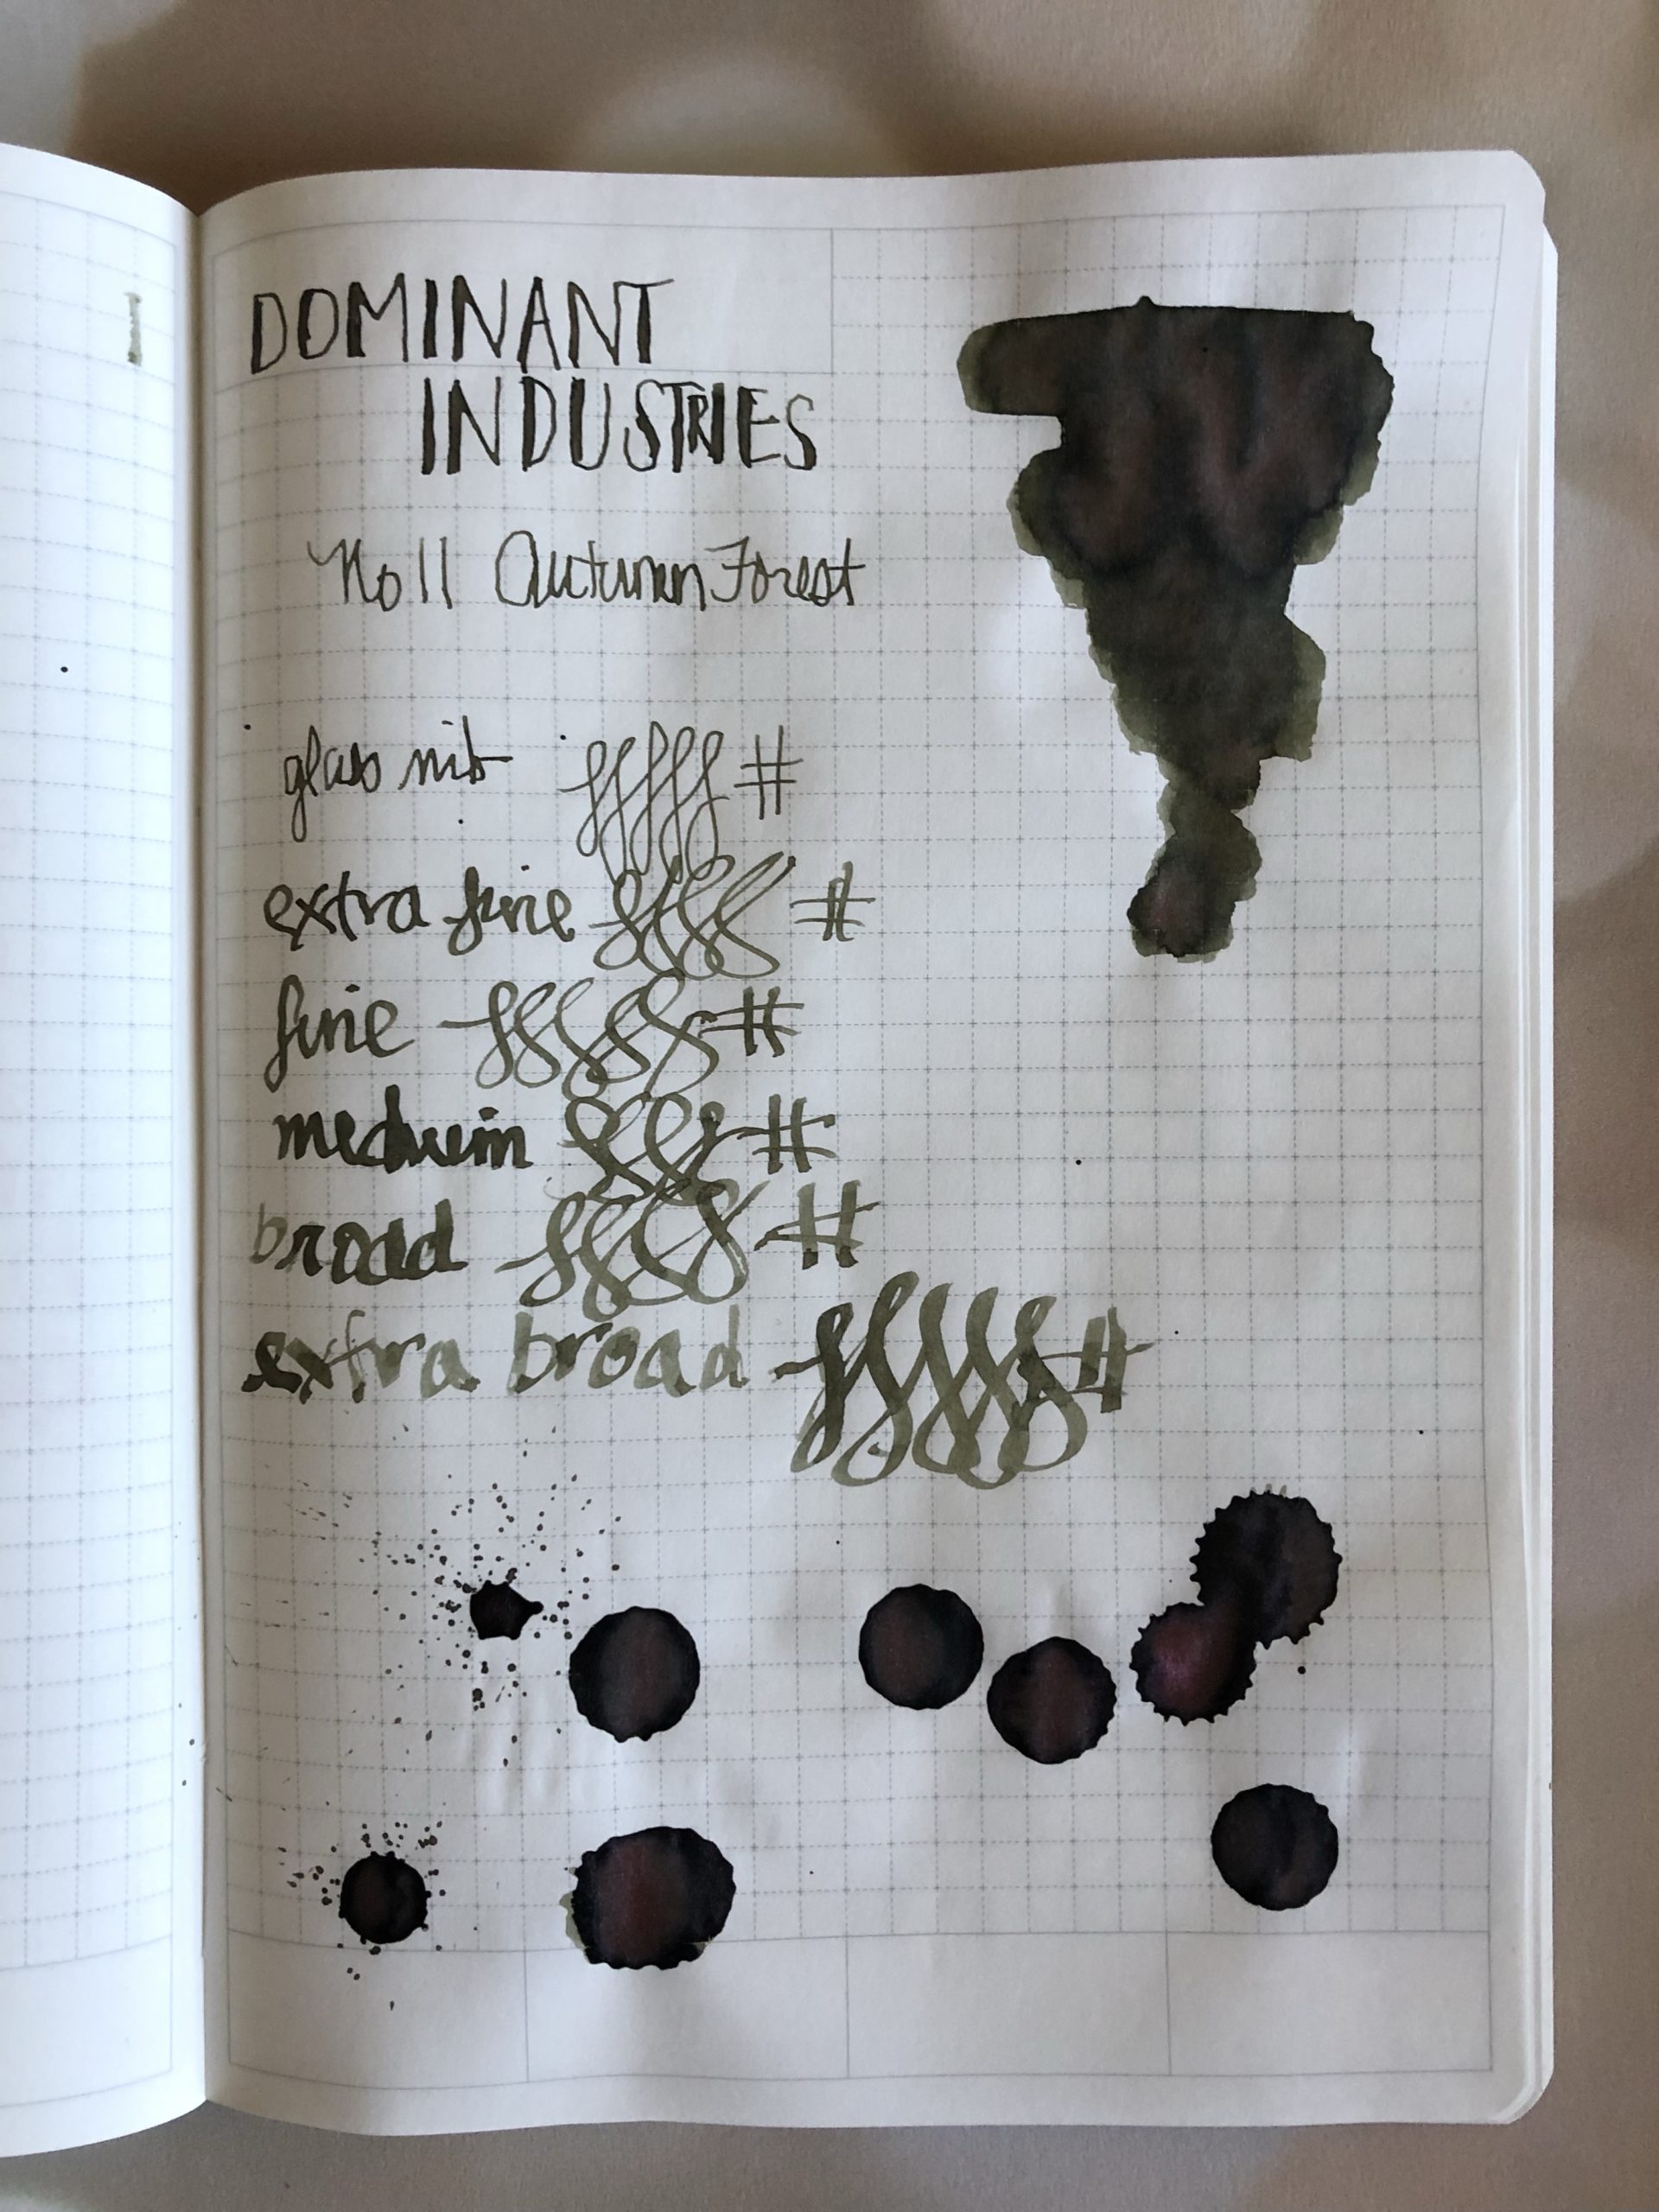 DOMINANT
INDUSTRIES
No 11 Autumn Forest
glass nib #
extra fine #
fine #
medium #
broad #
extra broad #